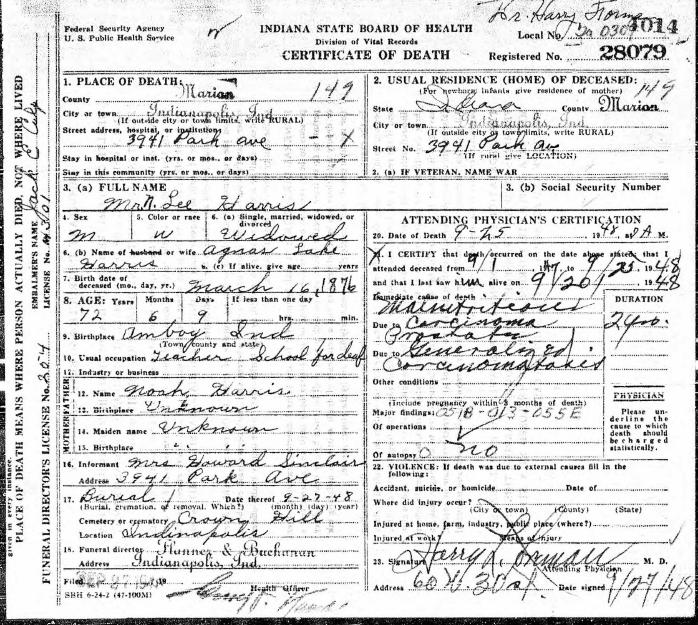 Dr. Harry
Federal Security Agency
U. S. Public Health Service
INDIANA STATE BOARD OF HEALTH
Division of Vital Records
CERTIFICATE OF DEATH
Local No. 4014
Registered No. 28079
PLACE OF DEATH MEANS WHERE PERSON ACTUALLY DIED, NOT WHERE LIVED
EMBALMER'S NAME Jack E
LICENSE No. 3101
FUNERAL DIRECTOR'S LICENSE No.
1. PLACE OF DEATH:
County Marion 149
City or town Indianapolis, Ind.
(If outside city or town limits, write RURAL)
Street address, hospital, or institution:
3941 Park Ave
Stay in hospital or inst. (yrs. or mos., or days)
Stay in this community (yrs., or mos., or days)
2. USUAL RESIDENCE (HOME) OF DECEASED:
(For newborn infants give residence of mother) 149
State Indiana County Marion
City or town Indianapolis, Ind.
(If outside city or town limits, write RURAL)
Street No. 3941 Park Av
(If rural give LOCATION)
2. (a) IF VETERAN, NAME WAR
3. (a) FULL NAME
Mr. N. Lee Harris
3. (b) Social Security Number
4. Sex
M
5. Color or race
W
6. (a) Single, married, widowed, or divorced
Widowed
6. (b) Name of husband or wife Agnas Lake
Harris
6. (c) If alive, give age years
7. Birth date of
deceased (mo., day, yr.) March 16, 1876
8. AGE: Years Months Days If less than one day
72 6 9 hrs. min.
9. Birthplace Amboy Ind
(Town, county and state)
10. Usual occupation Teacher School for deaf
11. Industry or business
FATHER
12. Name Noah Harris
13. Birthplace Unknown
MOTHER
14. Maiden name Unknown
15. Birthplace " "
16. Informant Mrs Howard Sinclair
Address 3941 Park Ave
17. Burial Date thereof 9-27-48
(Burial, cremation, or removal. Which?) (month) (day) (year)
Cemetery or crematory Crown Hill
Location Indianapolis
18. Funeral director Flanner & Buchanan
Indianapolis, Ind.
Filed 19
Health Officer
SBH 6-24-2 (47-100M)
ATTENDING PHYSICIAN'S CERTIFICATION
20. Date of Death 9-25 1948, at A M.
21. I CERTIFY that death occurred on the date above stated; that I
attended deceased from 9/1 1947, to 9/25 1948
and that I last saw him alive on 9/20 1948
Immediate cause of death
DURATION
Due to Carcinoma
Prostate
Due to Generalized
Carcinomatosis
Other conditions
(Include pregnancy within 3 months of death)
Major findings: 051B-013-055E
Of operations
Of autopsy no
PHYSICIAN
Please underline the cause to which death should be charged statistically.
22. VIOLENCE: If death was due to external causes fill in the
following:
Accident, suicide, or homicide Date of
Where did injury occur?
(City or town) (County) (State)
Injured at home, farm, industry, public place (where?)
Injured at work? Means of injury
23. Signature Harry L. M. D.
Attending Physician
Address Date signed 9/27/48